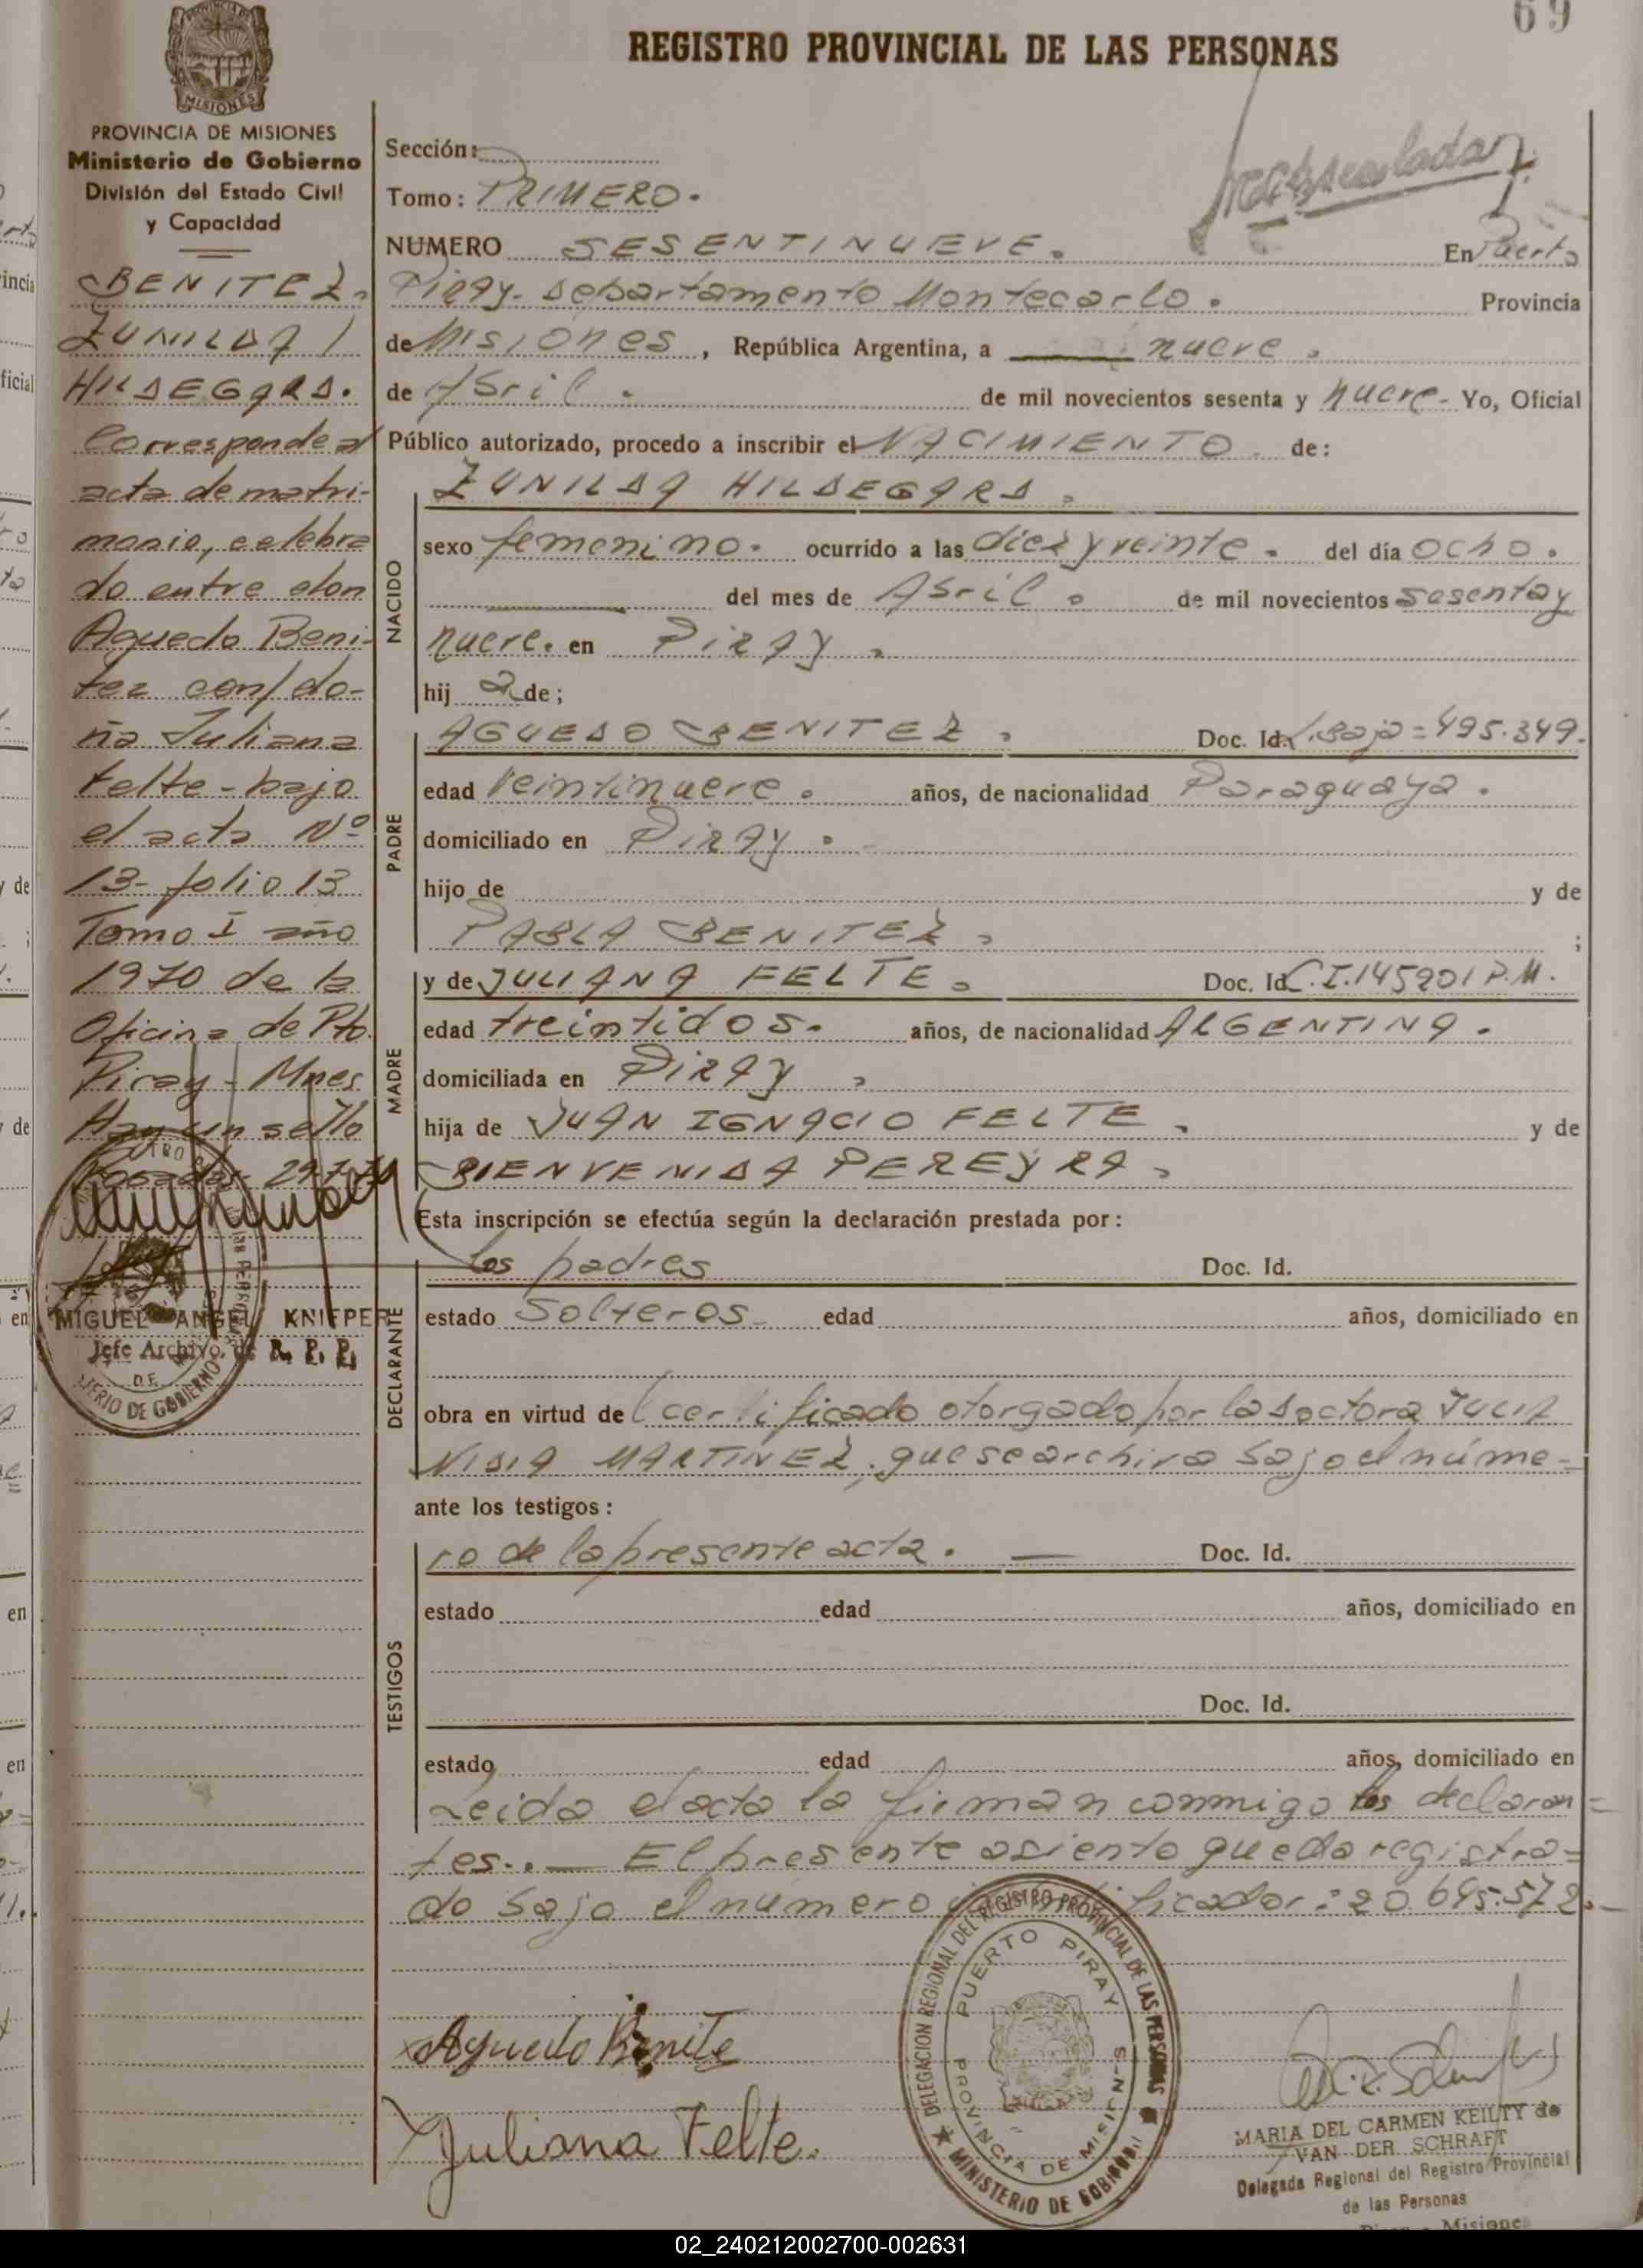 69
REGISTRO PROVINCIAL DE LAS PERSONAS
PROVINCIA DE MISIONES
Ministerio de Gobierno
División del Estado Civil
y Capacidad
BENITEZ,
ZUNILDA
HILDEGARD.
Corresponde al
acta de matri-
monio, celebra
do entre don
Aguedo Beni-
tez con/do-
ña Juliana
Felte - bajo
el acta Nº
13- folio 13
Tomo I año
1970 de la
Oficina de Pto.
Piray - Mnes
Hay un sello
MIGUEL ANGEL KNIEPER
Jefe Archivo de R. P. P.
Sección:
Tomo: PRIMERO.
NUMERO SESENTINUEVE. En Puerto
Piray. Departamento Montecarlo. Provincia
de Misiones, República Argentina, a nueve.
de Abril. de mil novecientos sesenta y nueve. Yo, Oficial
Público autorizado, procedo a inscribir el NACIMIENTO. de:
NACIDO
ZUNILDA HILDEGARD.
sexo femenino. ocurrido a las diez y veinte. del día ocho.
del mes de Abril. de mil novecientos sesenta y
nueve. en PIRAY.
hij a de;
PADRE
AGUEDO BENITEZ. Doc. Id. 495.349.
edad veintinueve. años, de nacionalidad Paraguaya.
domiciliado en PIRAY.
hijo de y de
PABLA BENITEZ. ;
MADRE
y de JULIANA FELTE. Doc. Id. C.I. 145901 P.M.
edad treintidos. años, de nacionalidad ARGENTINA.
domiciliada en PIRAY
hija de JUAN IGNACIO FELTE. y de
BIENVENIDA PEREYRA.
Esta inscripción se efectúa según la declaración prestada por:
DECLARANTE
los padres Doc. Id.
estado Solteros edad años, domiciliado en
obra en virtud del certificado otorgado por la doctora
NIDIA MARTINEZ, que se archiva bajo el núme-
ante los testigos:
TESTIGOS
ro de la presente acta. Doc. Id.
estado edad años, domiciliado en
Doc. Id.
estado edad años, domiciliado en
Leida el acta la firman conmigo los declaran-
tes. — El presente asiento queda registra-
do bajo el número : 20.695.572.
Aguedo Benite
Juliana Felte.
DELEGACION REGIONAL DEL REGISTRO PROVINCIAL DE LAS PERSONAS
PUERTO PIRAY
PROVINCIA DE MISIONES
MINISTERIO DE GOBIERNO
MARIA DEL CARMEN KEILTY de
VAN DER SCHRAFT
Delegada Regional del Registro Provincial
de las Personas
Misiones
02_240212002700-002631